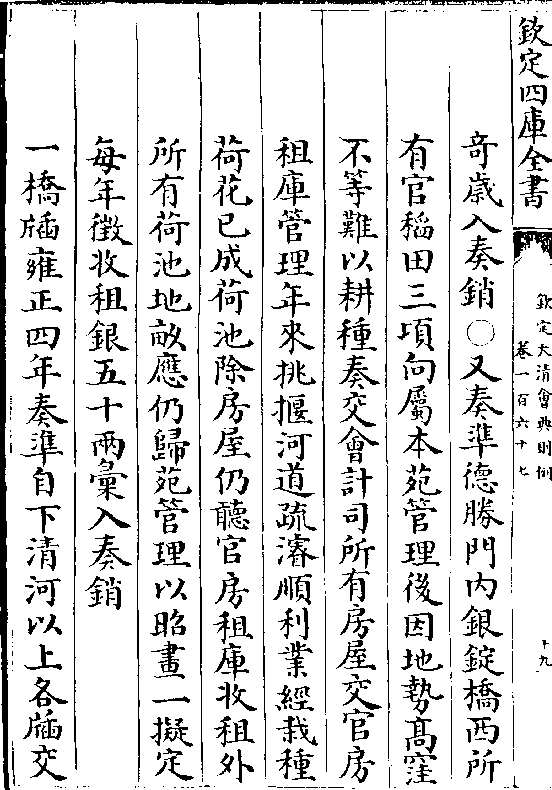 欽定四庫全書
欽定大清會典則例
卷一百六十七
十九
奇歲入奏銷○又奏準德勝門內銀錠橋西所
有官稻田三項向屬本苑管理後因地勢髙窪
不等難以耕種奏交會計司所有房屋交官房
租庫管理年來挑掘河道疏濬順利業經栽種
荷花已成荷池除房屋仍聽官房租庫收租外
所有荷池地畝應仍歸苑管理以昭畫一擬定
每年徵收租銀五十兩彙入奏銷
一橋牐雍正四年奏準自下清河以上各牐交